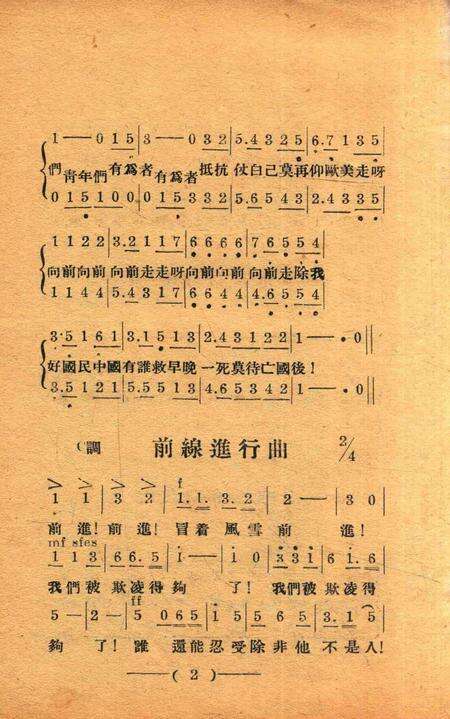 1—0 1 5 3—0 3 2 5.4 3 2 5 6.7 1 3 5
們青年們 有爲者有爲者 抵抗 仗自己莫再仰歐美走呀
0 1 5 1 0 0 0 1 5 3 3 2 5.6 5 4 3 2.4 3 3 5
1 1 2 2 3.2 1 1 1 7 6 6 6 6 7 6 5 5 4
向前向前 向前走走呀向前向前 向前走除我
1 1 4 4 5.4 3 1 7 6 6 4 4 4.6 5 5 4
3.5 1 6 1 3.1 5 1 3 2.4 3 1 2 2 1—.0
好國民中國有誰救早晚 一死莫待亡國後!
3.5 1 2 1 5.5 5 1 3 4.6 5 3 4 2 1—.0
C調 前線進行曲 2/4
f
1 1 3 2 1.1. 3.2 2— 3 0
前進!前進!冒着 風雪 前 進!
mf sfes
1 1 3 6 6.5 1— 1 0 3 3 1 6 1.6
我們被 欺凌得 夠 了! 我們被 欺凌得
ff
5—2—5 0 6 5 1 5 5 6 5 3.1 5
夠 了! 誰 還能忍受除非他 不是人!
—(2)—